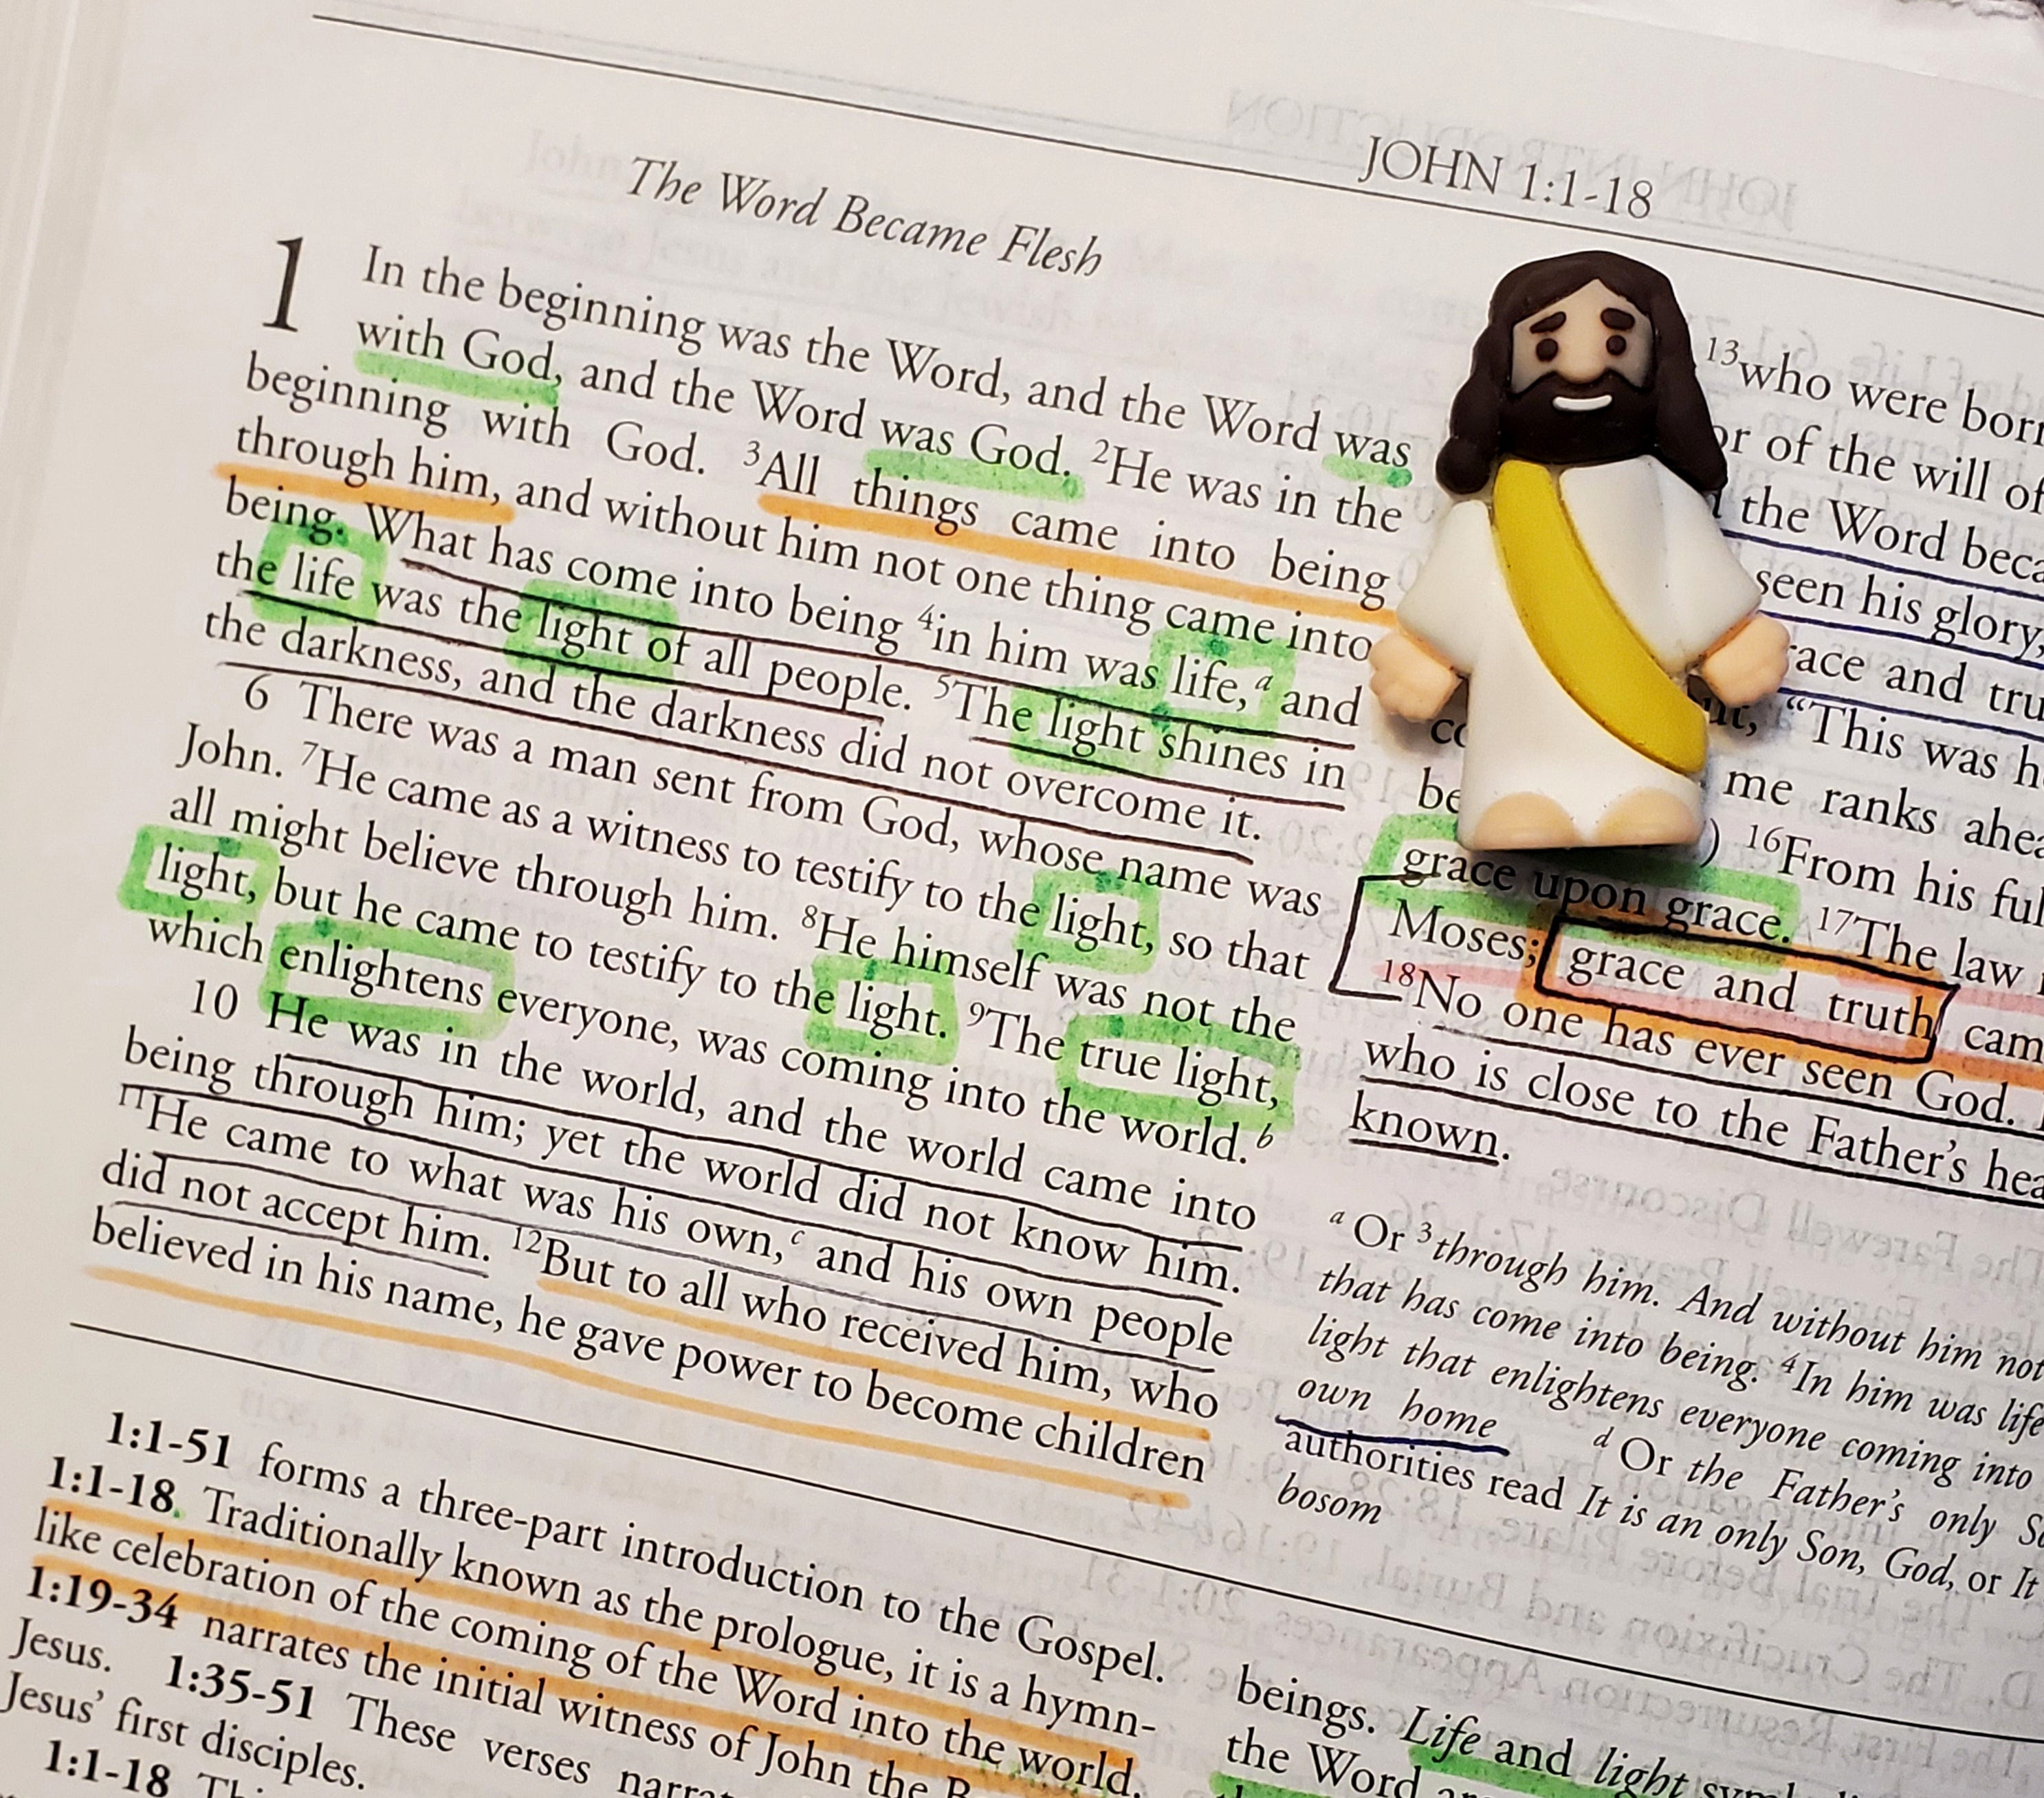 JOHN 1:1-18
The Word Became Flesh
1 In the beginning was the Word, and the Word was
with God, and the Word was God. 2He was in the
beginning with God. 3All things came into being
through him, and without him not one thing came into
being. What has come into being 4in him was life,a and
the life was the light of all people. 5The light shines in
the darkness, and the darkness did not overcome it.
6 There was a man sent from God, whose name was
John. 7He came as a witness to testify to the light, so that
all might believe through him. 8He himself was not the
light, but he came to testify to the light. 9The true light,
which enlightens everyone, was coming into the world.b
10 He was in the world, and the world came into
being through him; yet the world did not know him.
11He came to what was his own,c and his own people
did not accept him. 12But to all who received him, who
believed in his name, he gave power to become children
13who were born
or of the will of
the Word beca
seen his glory,
race and tru
"This was h
be me ranks ahea
) 16From his ful
grace upon grace. 17The law
Moses; grace and truth cam
18No one has ever seen God.
who is close to the Father's hea
known.
a Or 3through him. And without him not
that has come into being. 4In him was life
light that enlightens everyone coming into
own home d Or the Father's only S
authorities read It is an only Son, God, or It
bosom
1:1-51 forms a three-part introduction to the Gospel.
1:1-18 Traditionally known as the prologue, it is a hymn-
like celebration of the coming of the Word into the world.
1:19-34 narrates the initial witness of John the B
Jesus. 1:35-51 These verses narra
Jesus' first disciples.
1:1-18 Thi
beings. Life and light symb
the Word ar